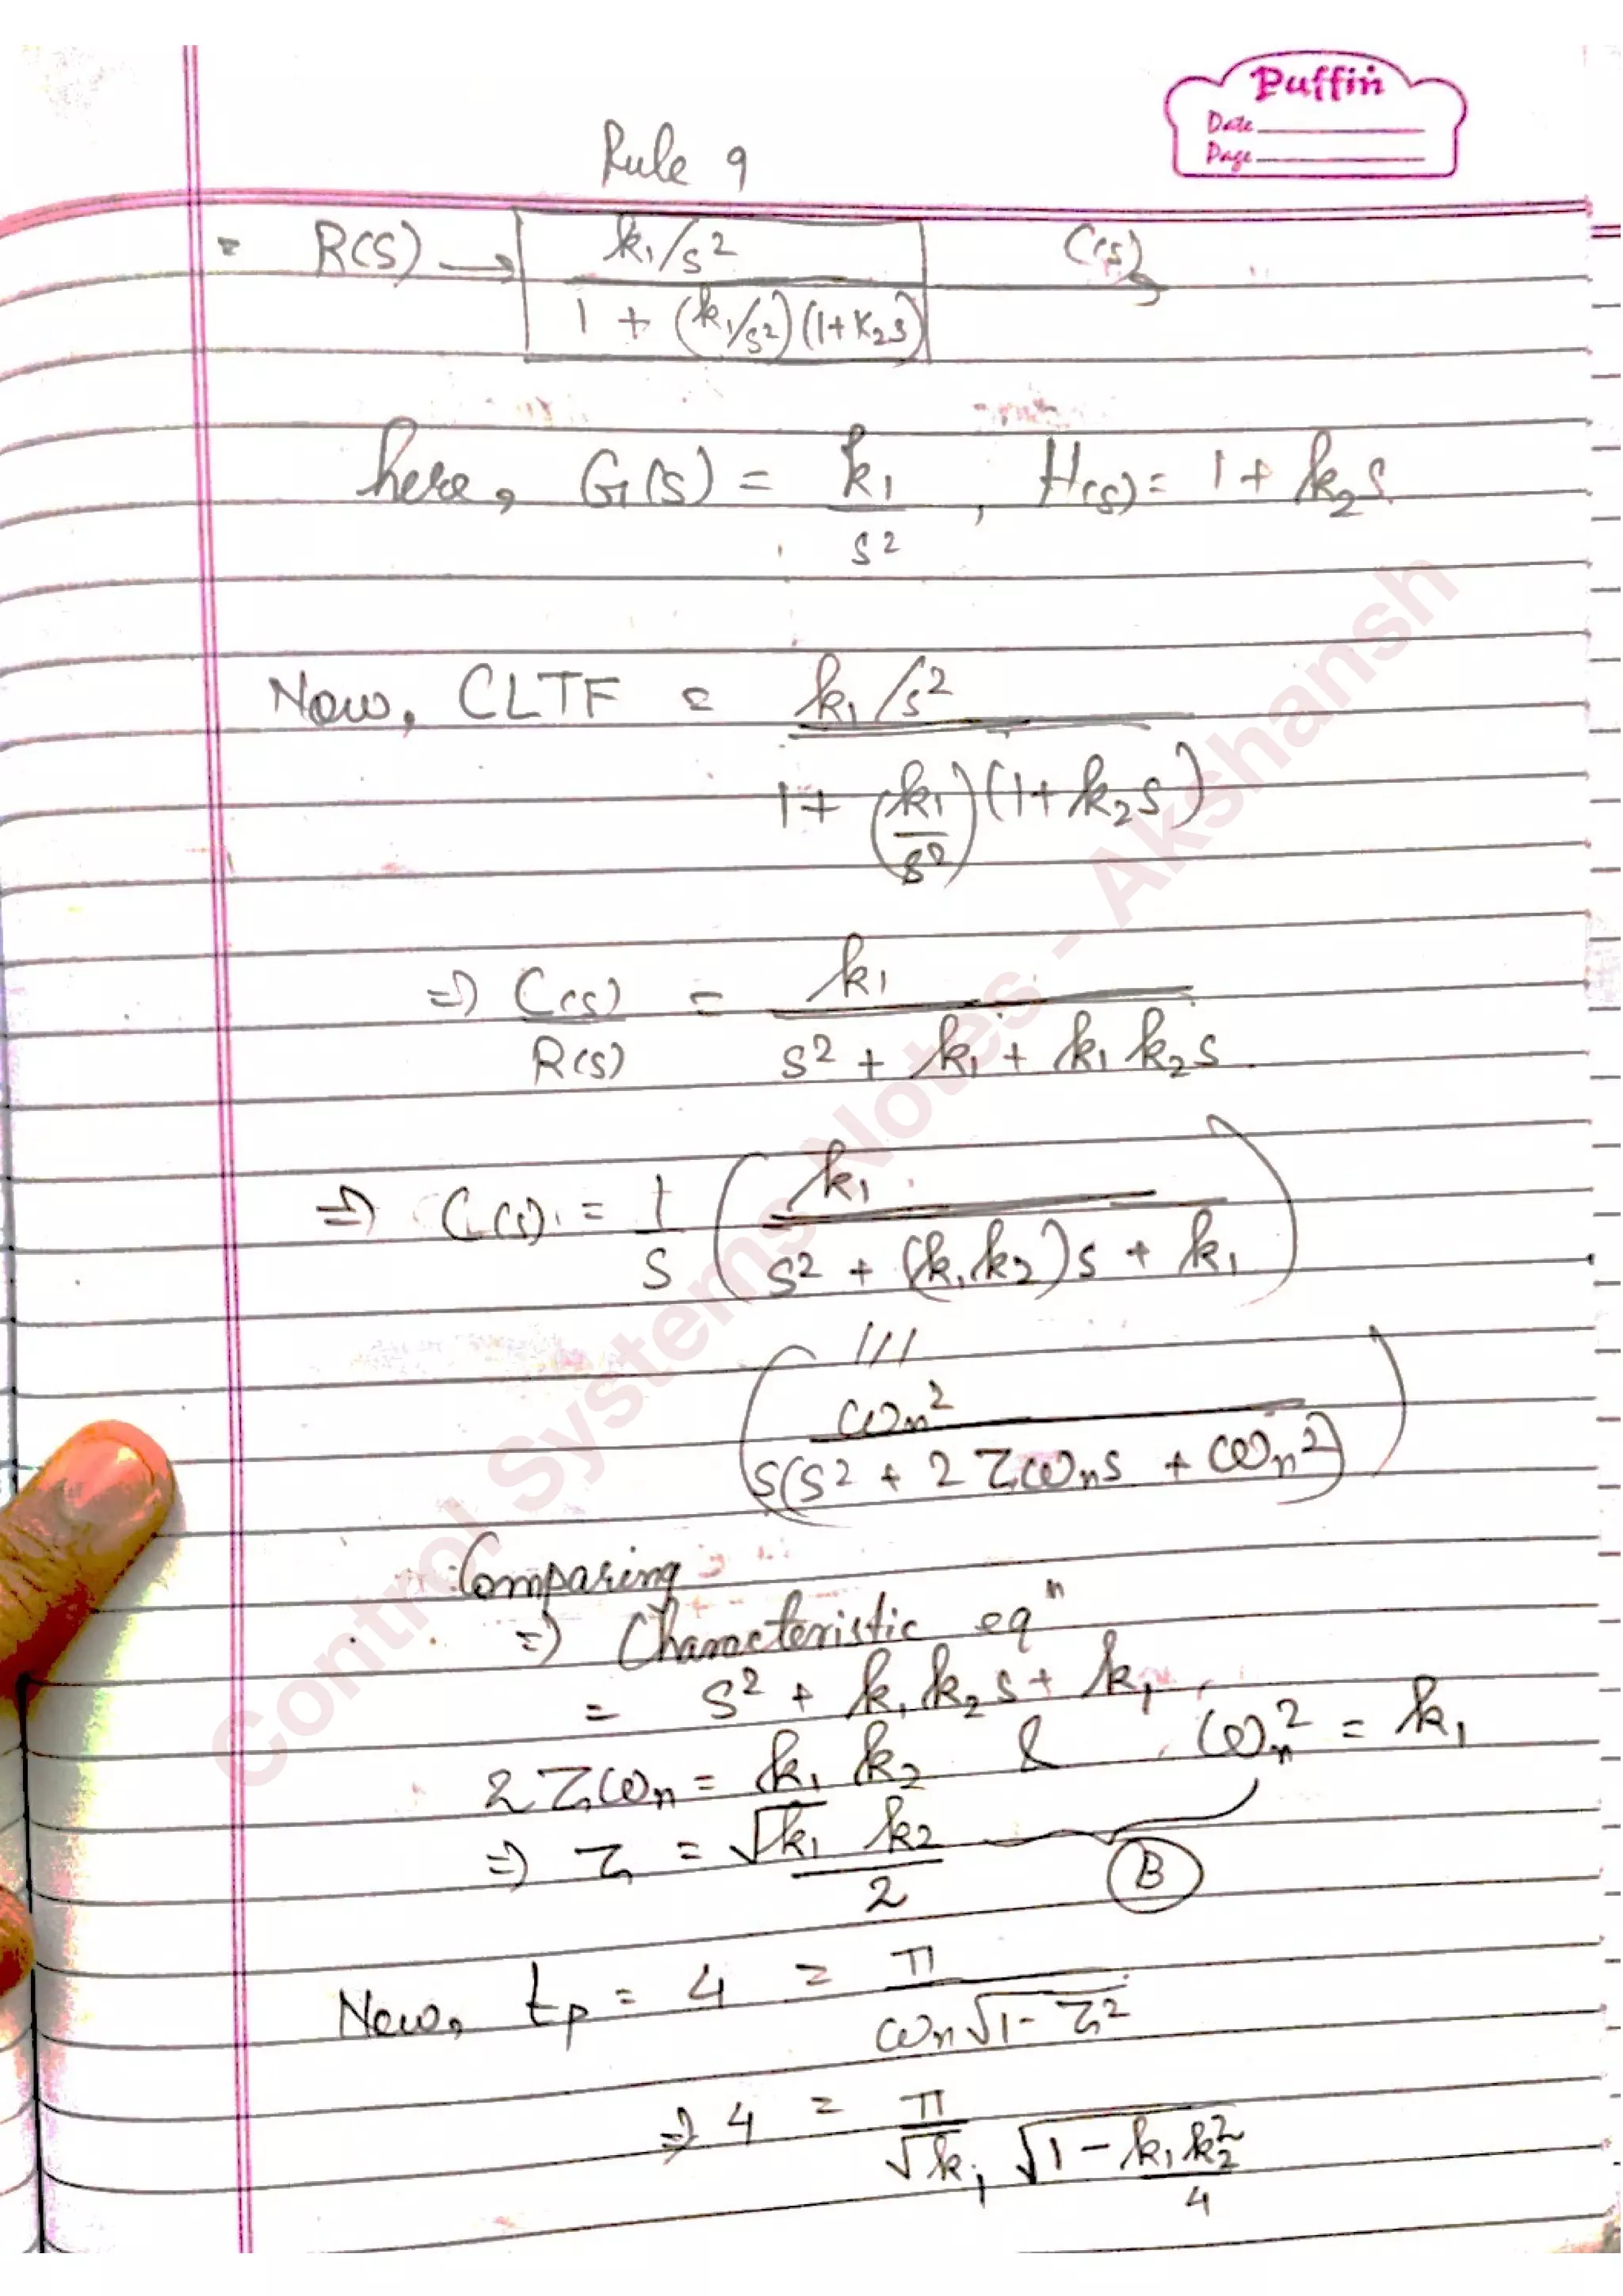 Puffin
Date
Page
Rule 9
= R(s) → k₁/s² / 1 + (k₁/s²)(1+k₂s) C(s) →
here, G(s) = k₁/s² , H(s) = 1 + k₂s
Now, CLTF = k₁/s² / 1 + (k₁/s²)(1+k₂s)
⇒ C(s)/R(s) = k₁ / s² + k₁ + k₁k₂s
⇒ C(s) = 1/s ( k₁ / s² + (k₁k₂)s + k₁ )
///
( ωn² / s(s² + 2ζωns + ωn²) )
Comparing
⇒ Characteristic eqⁿ
= s² + k₁k₂s + k₁
2ζωn = k₁k₂ & ωn² = k₁
⇒ ζ = √k₁ k₂ / 2 B
Now, tp = 4 = π / ωn√1-ζ²
⇒ 4 = π / √k₁ √1 - k₁k₂²/4
Control Systems Notes - Akshansh